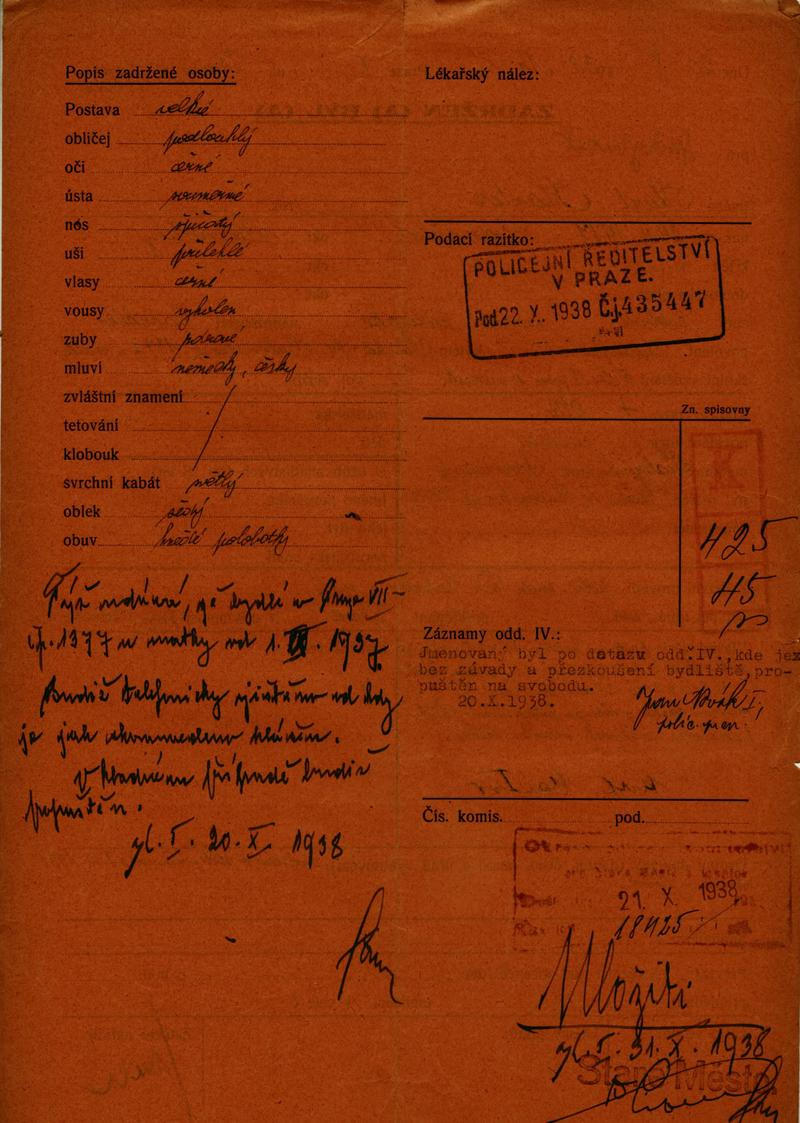 Popis zadržené osoby:
Postava velké
obličej podlouhlý
oči černé
ústa souměrné
nós špičatý
uši přilehlé
vlasy černé
vousy vyholen
zuby
mluví německy, česky
zvláštní znamení
tetování
klobouk
svrchní kabát světlý
oblek šedý
obuv hnědé polobotky
Týž udává, že bydlí v Praze VII-
čp. 1377 u matky od 1. 1937
Budiž telefonicky zjištěno od kdy
je jak hlášen.
V kladném případě budiž
propuštěn.
I. 20. X. 1938
Lékařský nález:
Podací razítko:
POLICEJNÍ ŘEDITELSTVÍ
V PRAZE.
Pod. 22. X. 1938 Č.j. 435447
Zn. spisovny
K
425
45
Záznamy odd. IV.:
Jmenovaný byl po dotazu odd. IV., kde jex
bez závady a přezkoušení bydliště, pro-
puštěn na svobodu.
20.X.1938.
Jan Novák I,
Čís. komis. pod.
21. X. 1938
18425
Uložiti
I. 31. X. 1938
Staré Město